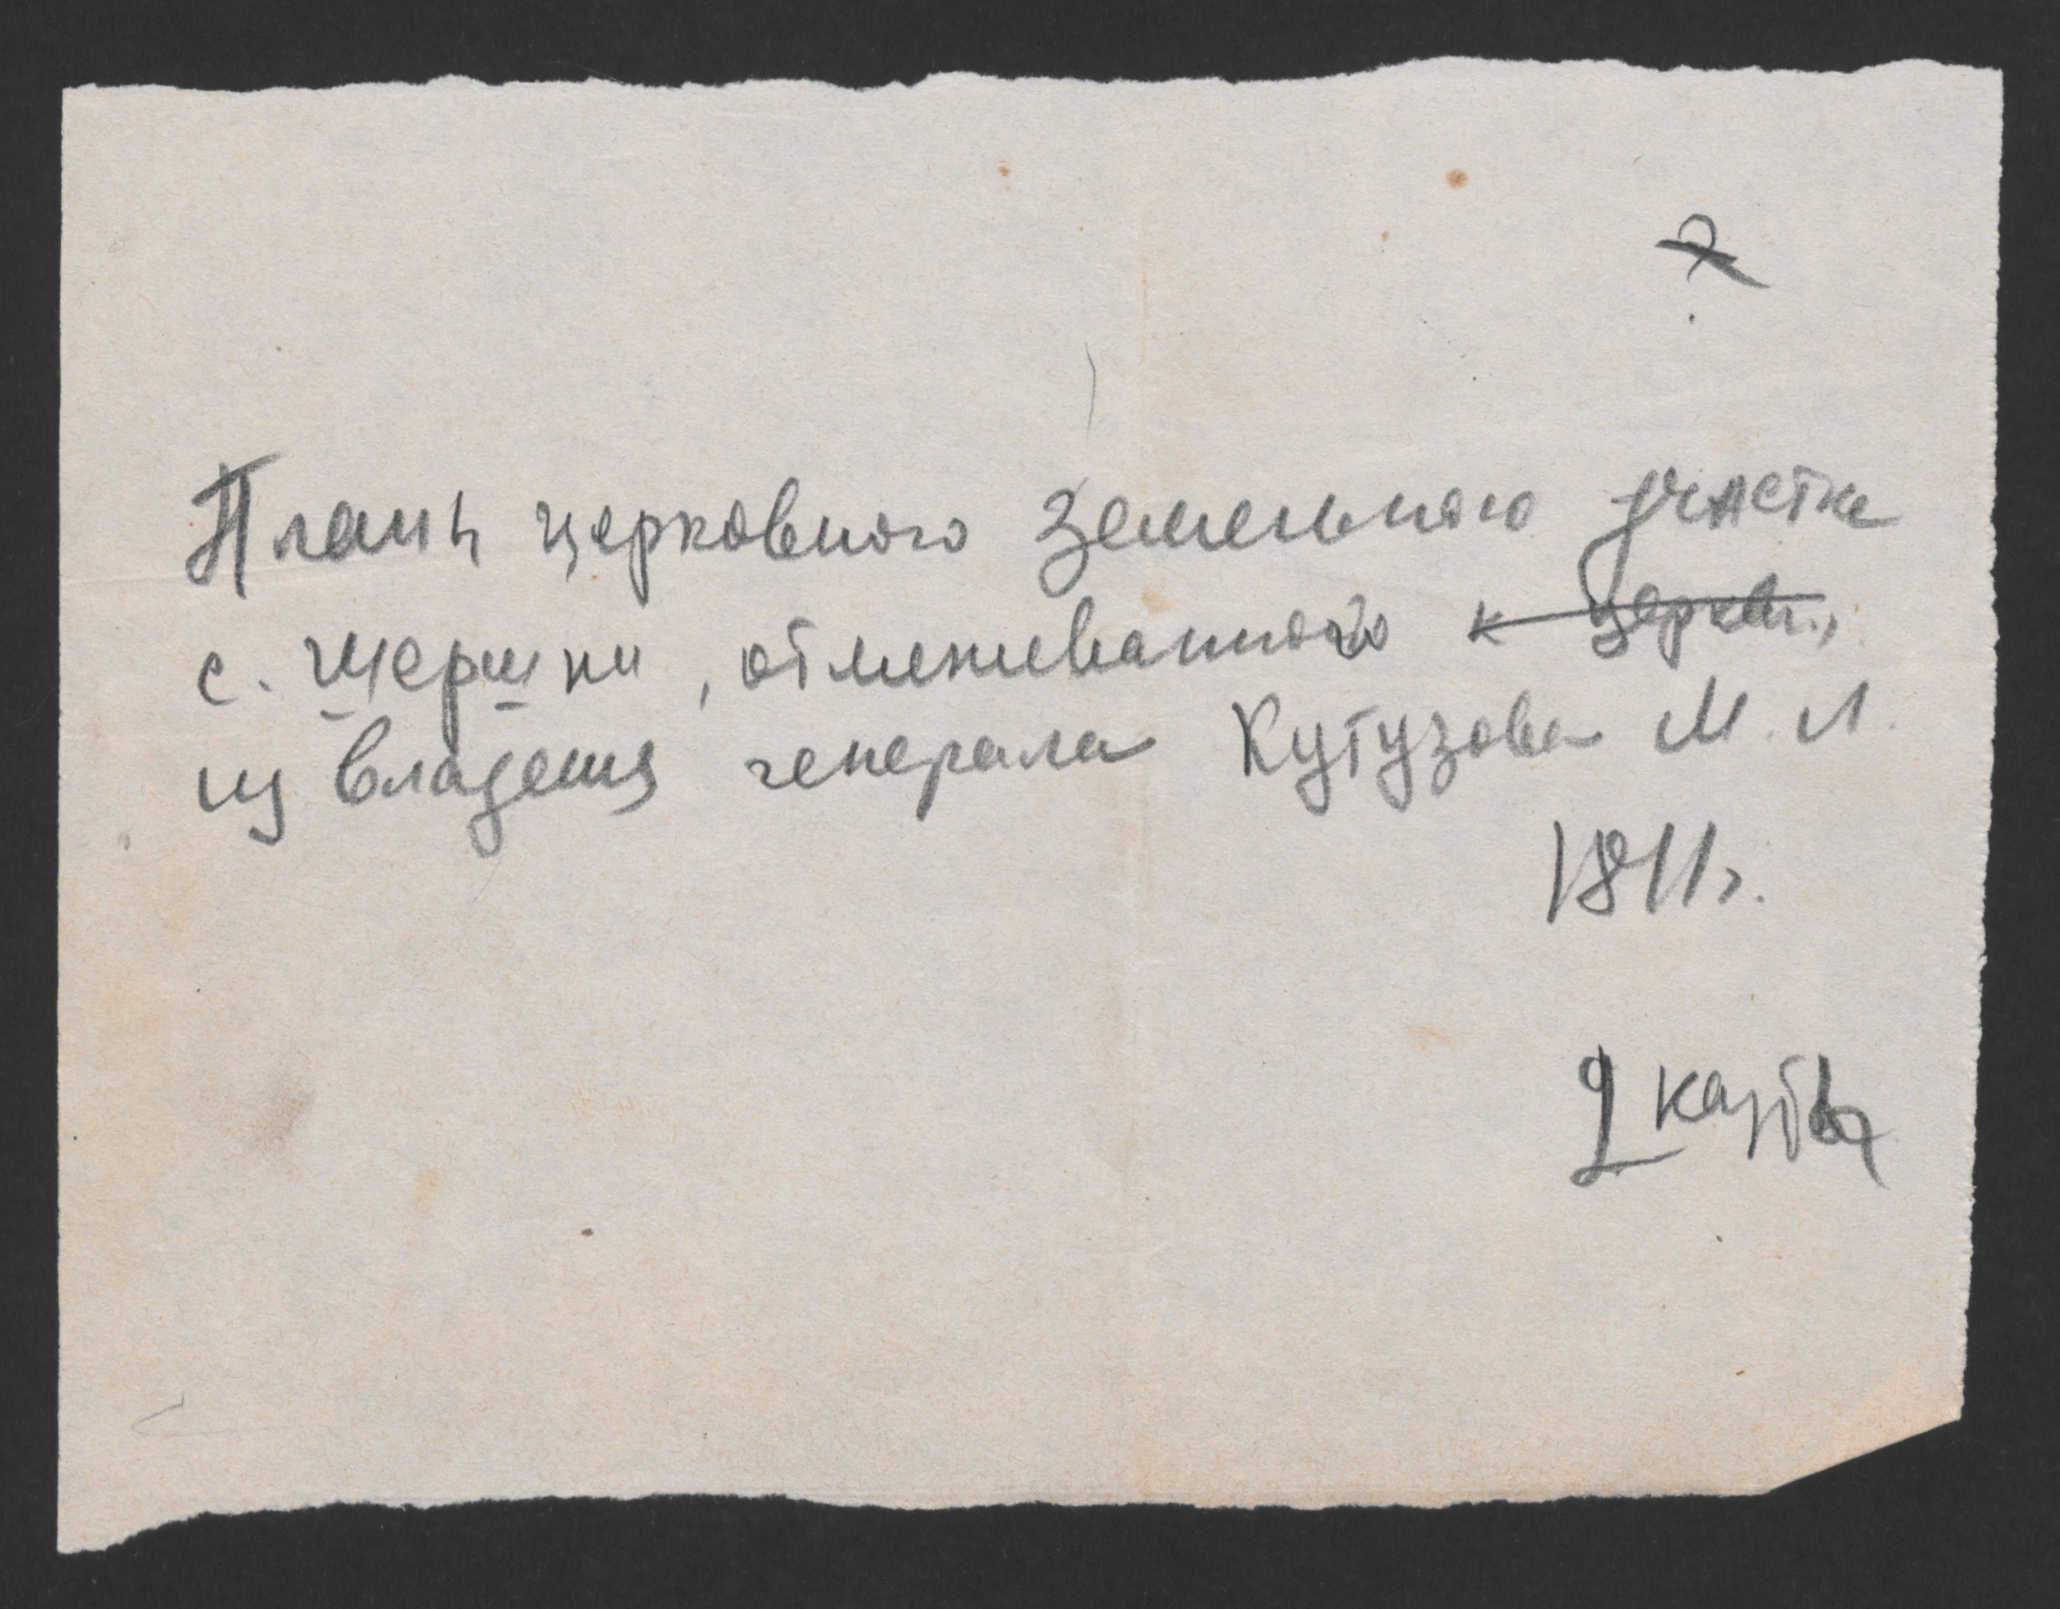 ?
Планъ церковного земельного участка
с. Шершни, отмежеванного к церкви,
из владения генерала Кутузова М. И.
1811 г.
2 карты